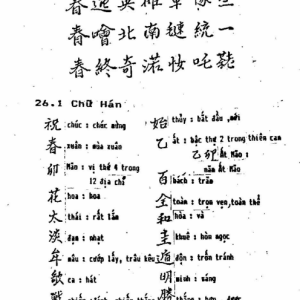 春繪北南繾統一
春終奇渃妝吒鞋
26.1 Chữ Hán
祝 chúc : chúc mừng
春 xuân : mùa xuân
卯 Mão : vị thứ 4 trong
12 địa chỉ
花 hoa : hoa
太 thái : rất lắm
淡 đạm : nhạt
牟 mâu : cướp lấy, trâu kêu
歌 ca : hát
始 thủy : bắt đầu ,mới
乙 ất : bậc thứ 2 trong thiên can
乙卯 ất Mão :
năm ất Mão
百 bách : trăm
全 toàn : trọn vẹn,toàn thể
和 hòa : và
圭 khuê : hòn ngọc
遁 độn : trốn tránh
明 minh : sáng
勝